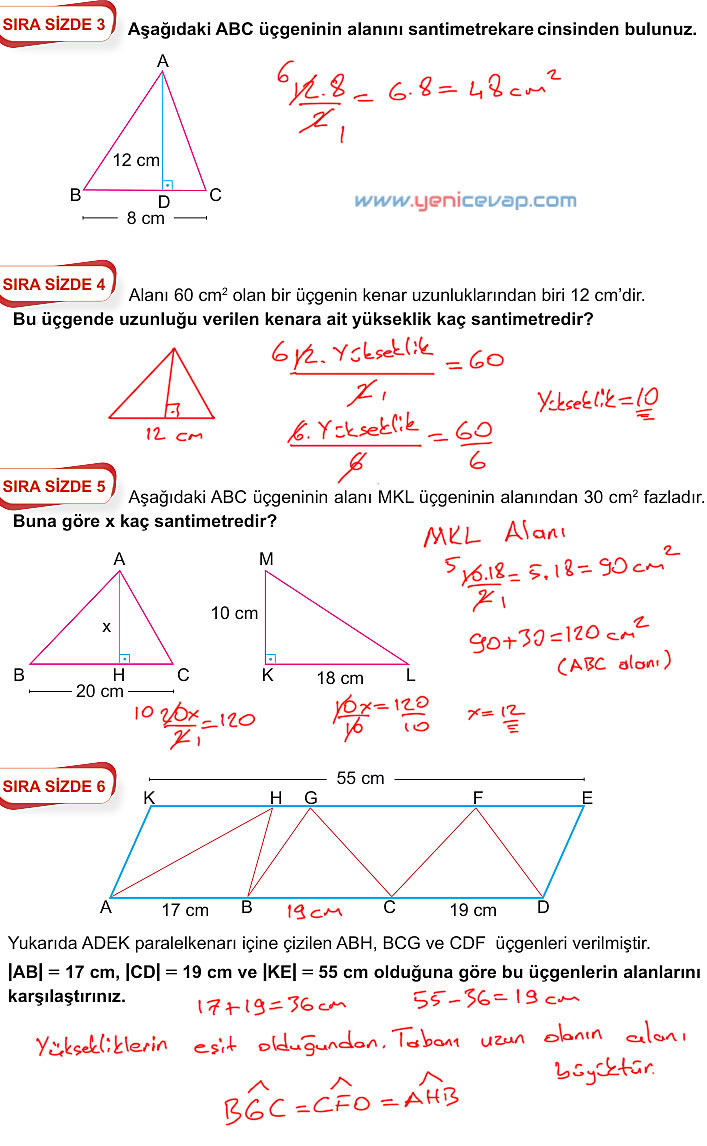 SIRA SİZDE 3
Aşağıdaki ABC üçgeninin alanını santimetrekare cinsinden bulunuz.
A
12 cm
B
D
C
8 cm
6 12.8 / 2 1 = 6.8 = 48 cm²
www.yenicevap.com
SIRA SİZDE 4
Alanı 60 cm² olan bir üçgenin kenar uzunluklarından biri 12 cm'dir.
Bu üçgende uzunluğu verilen kenara ait yükseklik kaç santimetredir?
12 cm
6 12. Yükseklik / 2 1 = 60
6. Yükseklik / 6 = 60 / 6
Yükseklik = 10
SIRA SİZDE 5
Aşağıdaki ABC üçgeninin alanı MKL üçgeninin alanından 30 cm² fazladır.
Buna göre x kaç santimetredir?
A
x
B
H
C
20 cm
M
10 cm
K
18 cm
L
MKL Alanı
5 10.18 / 2 1 = 5.18 = 90 cm²
90+30=120 cm²
(ABC alanı)
10 20x / 2 1 = 120
10x / 10 = 120 / 10
x = 12
SIRA SİZDE 6
55 cm
K H G F E
A 17 cm B 19 cm C 19 cm D
Yukarıda ADEK paralelkenarı içine çizilen ABH, BCG ve CDF üçgenleri verilmiştir.
|AB| = 17 cm, |CD| = 19 cm ve |KE| = 55 cm olduğuna göre bu üçgenlerin alanlarını
karşılaştırınız.
17+19=36 cm
55-36=19 cm
Yüksekliklerin eşit olduğundan. Tabanı uzun olanın alanı
büyüktür.
BGC = CFD = AHB